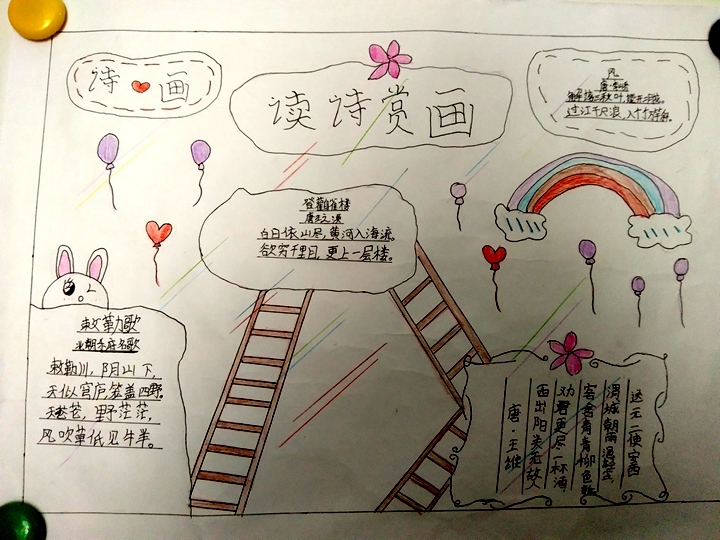 诗画
读诗赏画
风
唐·李峤
解落三秋叶,
过江千尺浪,入竹万
登鸛雀楼
唐王之涣
白日依山尽,黄河入海流。
欲穷千里目,更上一层楼。
敕勒歌
北朝乐府民歌
敕勒川,阴山下,
天似穹庐,笼盖四野。
天苍苍,野茫茫,
风吹草低见牛羊。
送元二使安西
渭城朝雨浥轻尘
客舍青青柳色新
劝君更尽一杯酒
西出阳关无故人
唐·王维